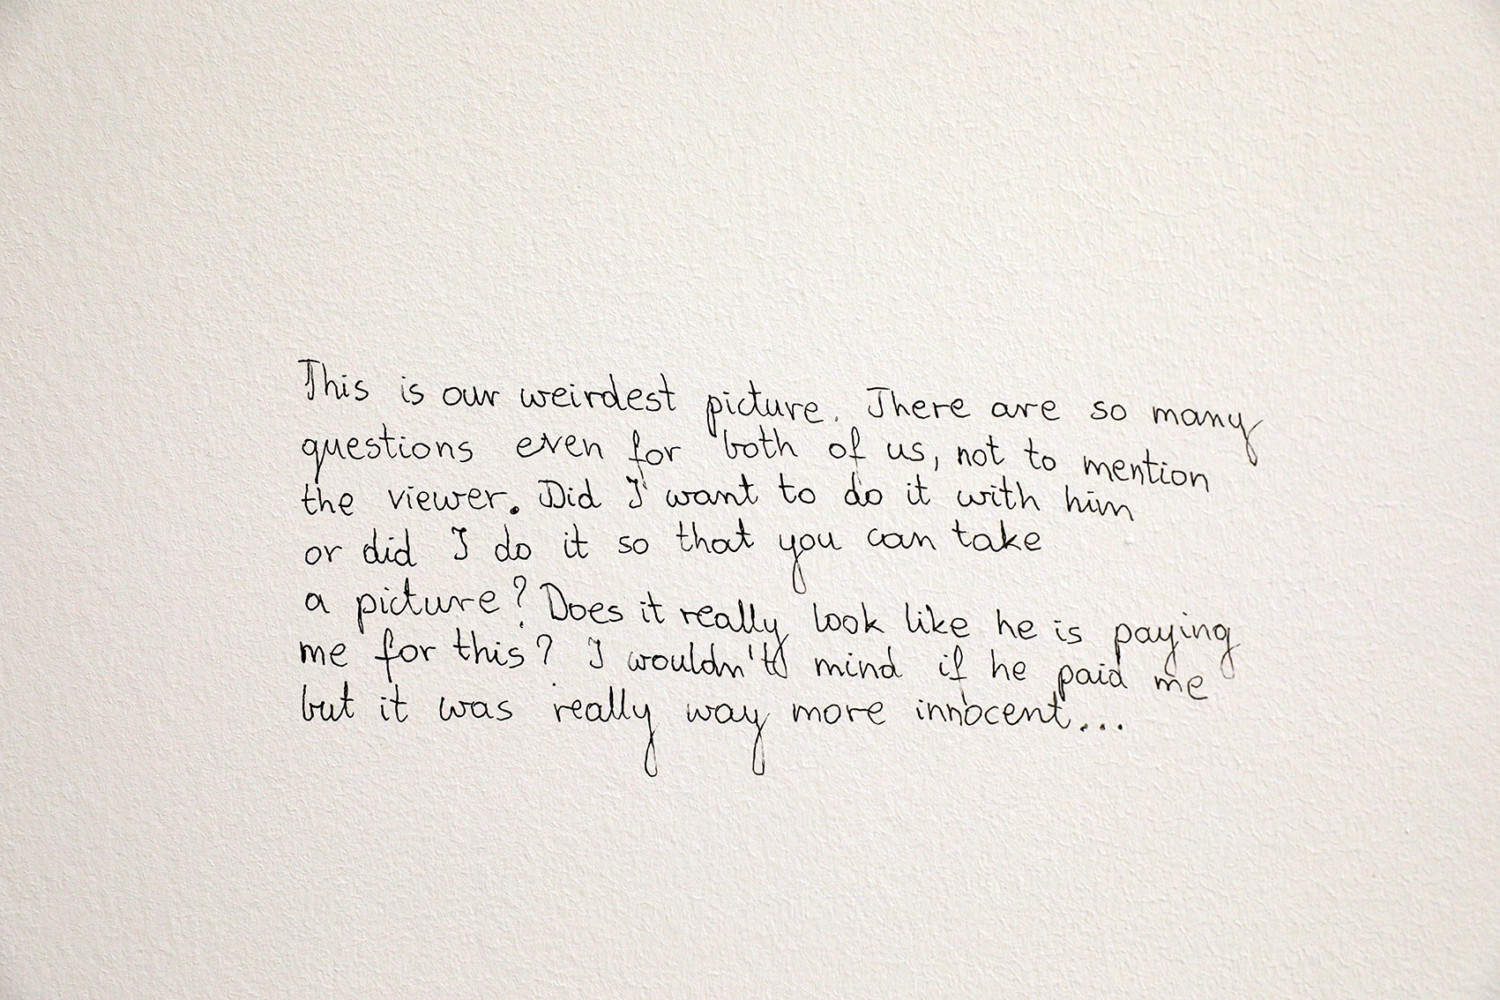 This is our weirdest picture. There are so many
questions even for both of us, not to mention
the viewer. Did I want to do it with him
or did I do it so that you can take
a picture? Does it really look like he is paying
me for this? I wouldn't mind if he paid me
but it was really way more innocent...